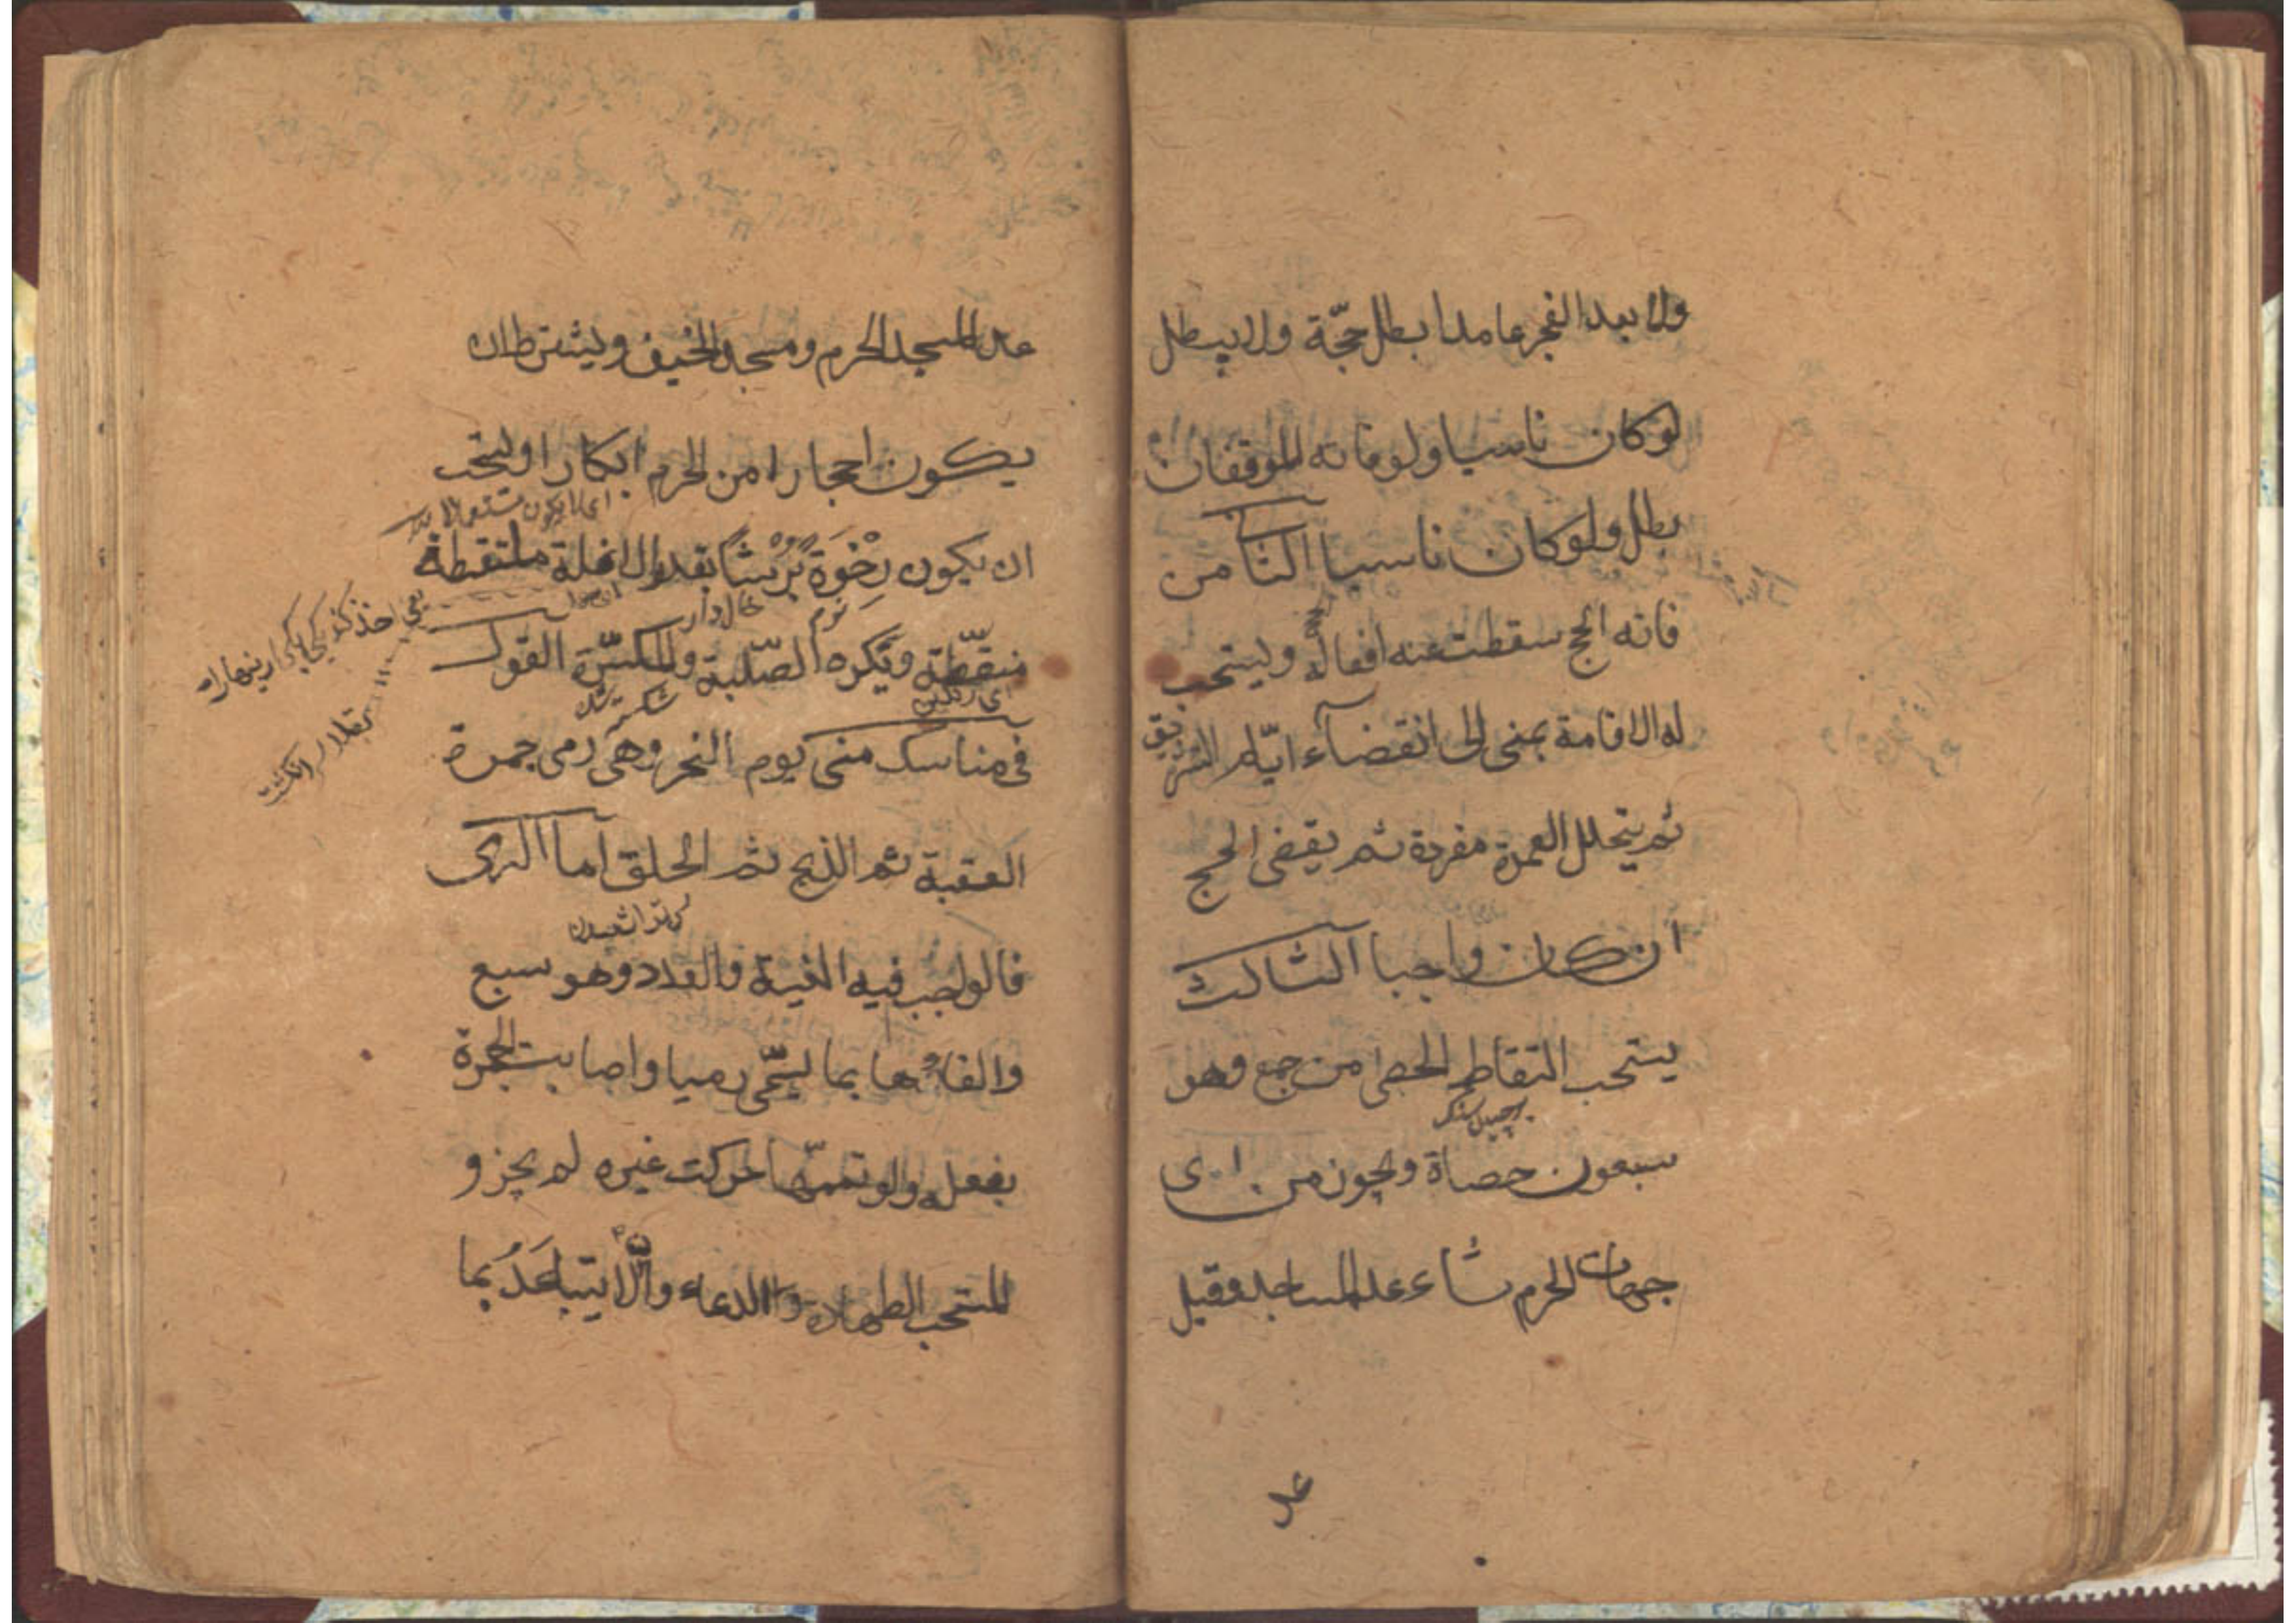 ولا بعد الفجر عامدا بطل حجّة ولا يبطل
لوكان ناسيا ولو فاته الموقفان
بطل ولو كان ناسيا الثامن
فاته الحج سقطت عنه افعاله ويستحب
له الاقامة بمنى الى انقضآء ايّام التشريق
ثم يتحلل العمرة مفردة ثم يقضى الحج
ان كان واجبا الثالث
يستحب التقاط الحصى من جمع وهو
سبعون حصاة ويجوز من اى
جهات الحرم شاء عدا المساجد وقيل
عدا
عدا المسجد الحرم ومسجد الخيف ويشترط ان
يكون احجارا من الحرم ابكارا ويستحب
ان يكون رخوة بُرْشًا بقدر الانملة ملتقطة
نرم خال دار
منقّطة ويكره الصّلبة والمكسّرة القول
اى رنكين
فى مناسك منى يوم النحر وهى رمى جمرة
العقبة ثم الذبح ثم الحلق اما الرمى
فالواجب فيه النية والعدد وهو سبع
والقاؤها بما يسمّى رميا واصابت الجمرة
بفعله ولو تممّها حركت غيره لم يجز و
المستحب الطهارة والدعاء والّا يتباعَدُ بما